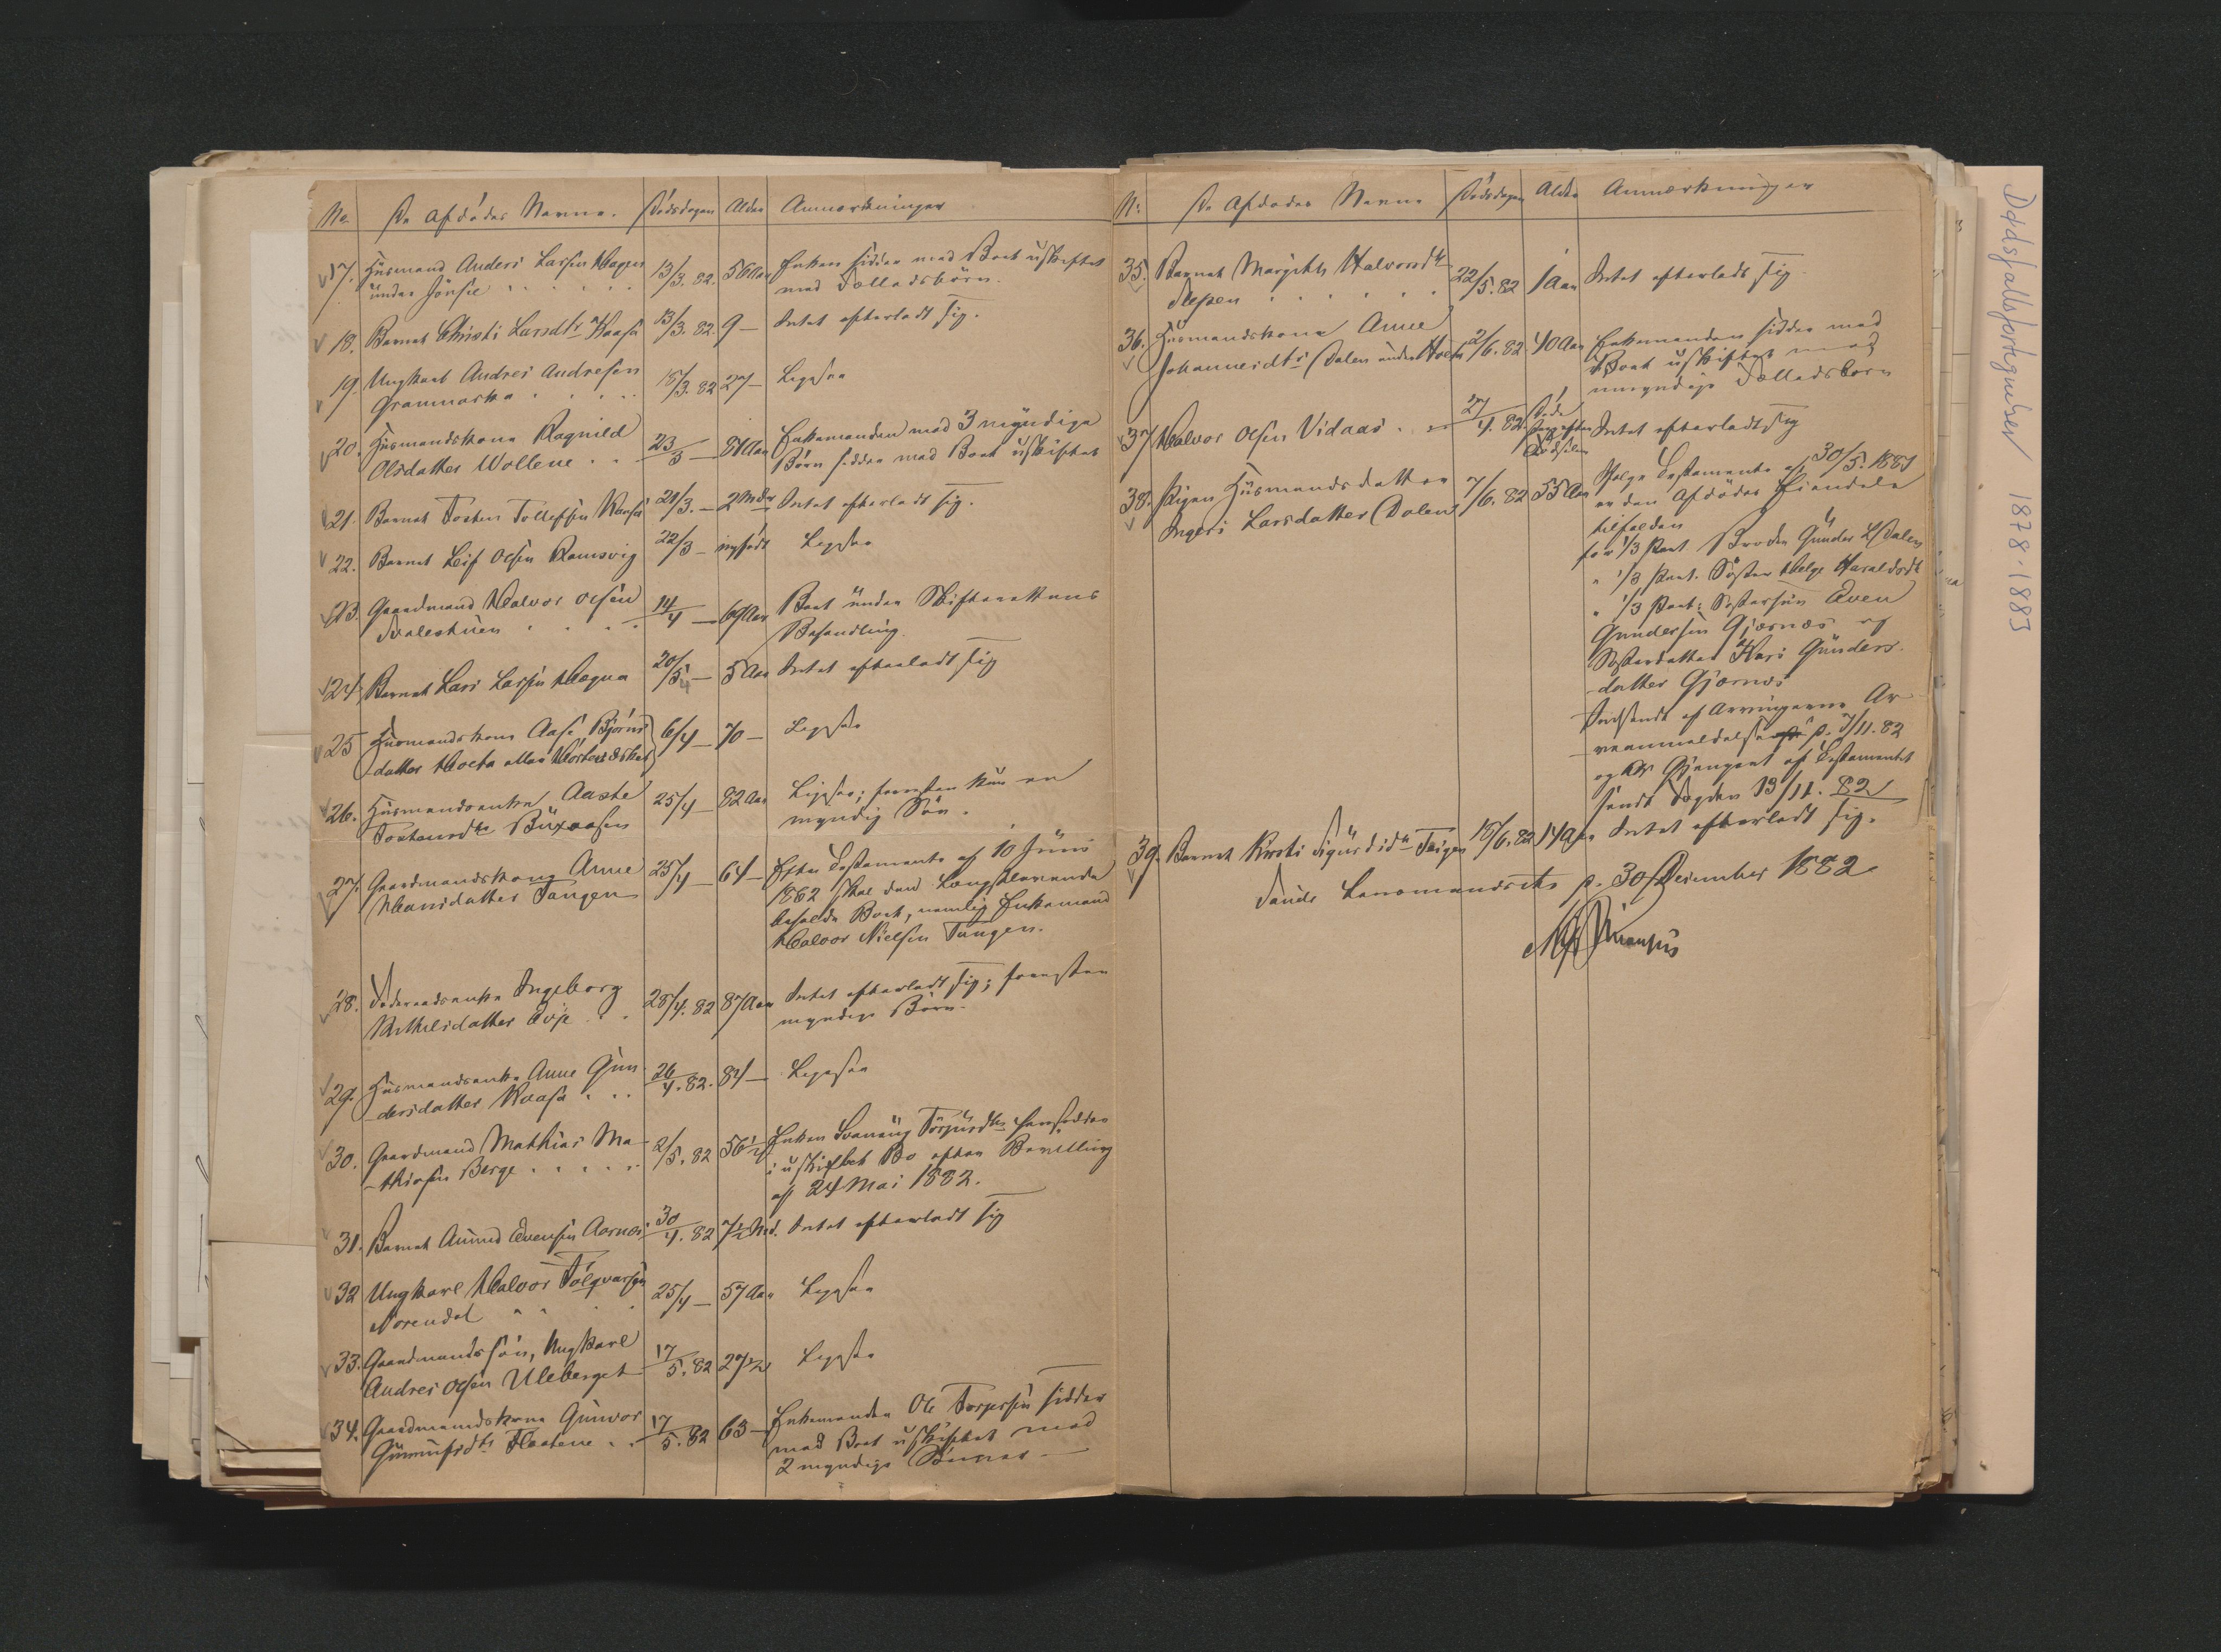 No. De Afdødes Navne. Dødsdagen Alder Anmærkninger
17. Husmand Anders Larsen Hagen 13/3. 82. 56 Aar Enken sidder med Boet uskiftet
under Jønsie med Fælledsbørn.
18. Barnet Christi Larsdtr Kaasa 13/3. 82 9 — Intet efterladt sig.
19. Ungkarl Andres Andresen 18/3. 82 27 — Ligesaa
20. Husmandskone Ragnild 23/3 — 81 Aar Enkemanden med 3 myndige
Olsdatter Wollene Børn sidder med Boet uskiftet
21. Barnet Tosten Tollefsen Kaasa 21/3. — 2 Mdr Intet efterladt sig.
22. Barnet Leif Olsen Ramsvig 22/3 — nyfødt Ligesaa
23. Gaardmand Halvor Olsen 14/4 — 69 Aar Boet under Skifterettens
Behandling.
24. Barnet Lars Larsen Hegna 20/5 4 — 5 Aar Intet efterladt sig
25 Huusmandskone Aase Bjørns 6/4 — 70 — Ligesaa
datter Hoeta eller
26. Husmandsenke Aaste 25/4 — 82 Aar Ligesaa; forresten kun en
Tostensdtr myndig Søn.
27. Gaardmandskone Anne 25/4 — 64 — Efter Testamente af 10 Juni
Hansdatter Tangen 1862 skal den Længstlevende
beholde Boet, nemlig Enkemand
Halvor Nielsen Tangen.
28. Føderaadsenke Ingeborg 28/4. 82 87 Aar Intet efterladt sig; forresten
Kittilsdatter Evje myndige Børn.
29. Husmandsenke Anne Gun 26/4. 82. 84 — Ligesaa
dersdatter Kaasa
30. Gaardmand Mathias Ma- 2/5. 82 56 1/2 Enken hensidder
thiasen Berge i uskiftet Bo efter Bevilling
af 24 Mai 1882.
31. Barnet Amund Evensen Aarnes 30/4. 82 7 1/2 Md. Intet efterladt sig
32 Ungkarl Halvor Folqvarsen 25/4 — 57 Aar Ligesaa
Norendal
33. Gaardmandssøn, Ungkarl 17/5. 82 27 1/2 Ligesaa
Andres Olsen Uleberget
34. Gaardmandskone Gunvor 17/5. 82 63 — Enkemanden Ole Torjersen sidder
Gunnufsdtr Flatene med Boet uskiftet med
2 myndige
N: De Afdødes Navne Dødsdagen Alder Anmærkninger
35. Barnet Margithe Halvorsdtr 22/5. 82 1 Aar Intet efterladt sig
36. Husmandskone Anne 2/6. 82 40 Aar Enkemanden sidder med
Johannesdtr Dalen under Boet uskiftet med
umyndige Fælledsbørn
37 Halvor Olsen Vidaas 27/4. 82 Intet efterladt sig
38. Pigen Husmandsdatter 7/6. 82 55 Aar Ifølge Testamente af 30/5. 1881
Ingeri Larsdatter Dalen er den Afdødes Eiendele
tilfalden
for 1/3 Part Broder Gunder L Dalen
" 1/3 Part. Søster Helge Haraldsdtr
" 1/3 Part: Søstersøn Even
Gundersen Gjernes og
Søsterdatter Kari Gunders-
datter Gjernes
af Arvingerne Ar-
veanmeldelse p. 7/11. 82
og Gjenpart af Testamentet
sendt Fogden 13/11. 82
39. Barnet Kirsti Sigurdsdtr Teigen 18/6. 82 14 Aar Intet efterladt sig.
Sauds Lensmandsets p. 30 December 1882
Dødsfallsfortegnelser 1878-1883